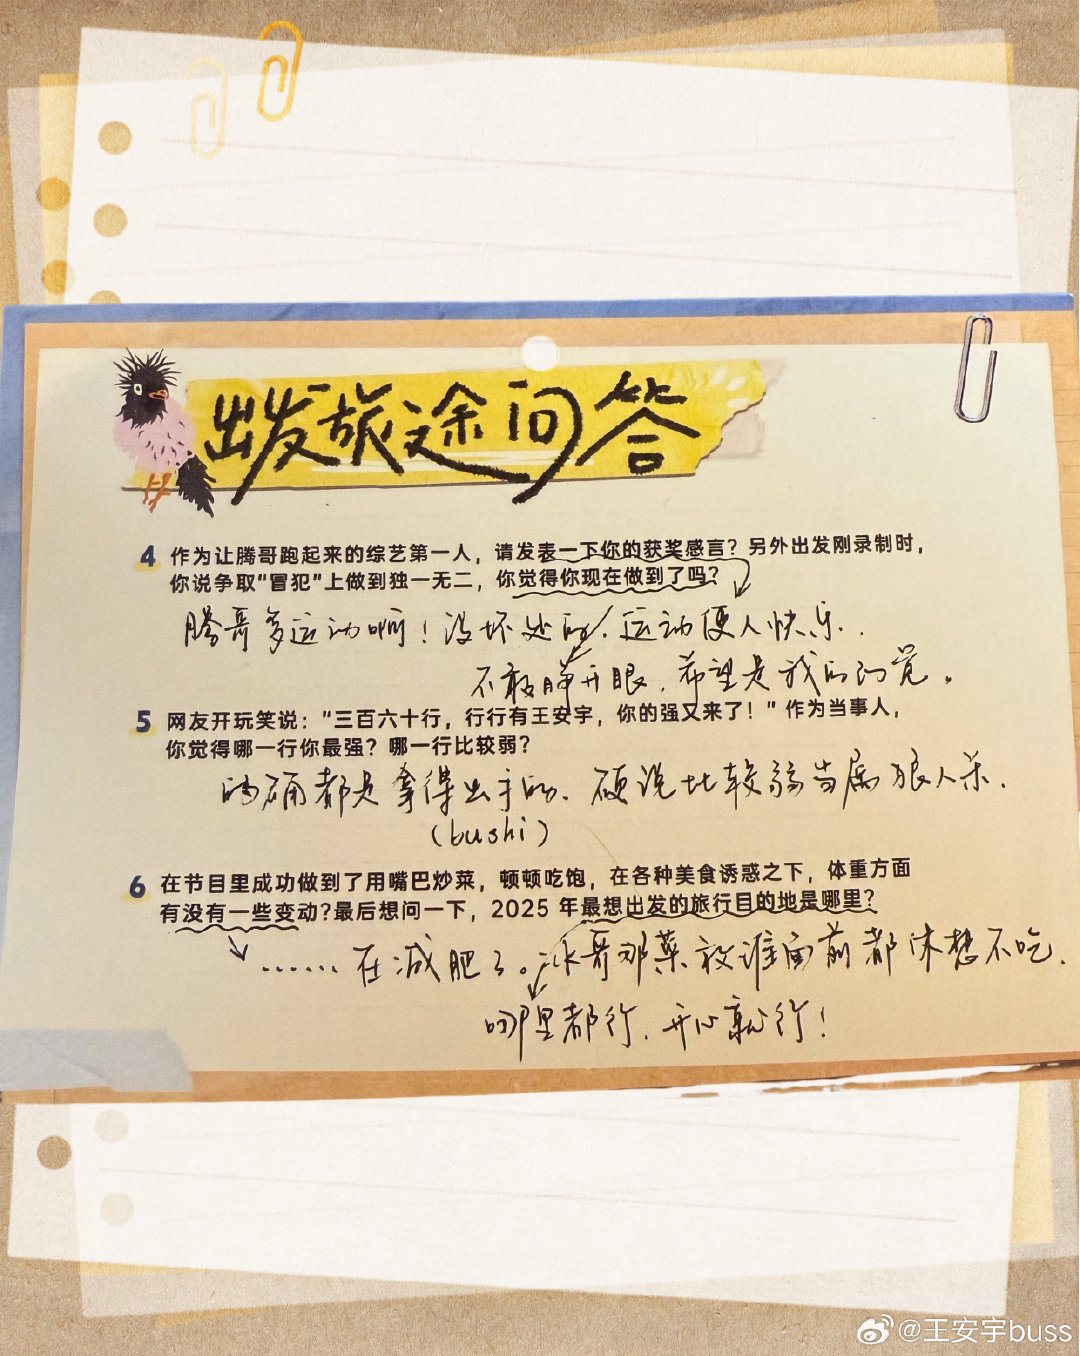 出发旅途问答
4 作为让腾哥跑起来的综艺第一人，请发表一下你的获奖感言？另外出发刚录制时，
你说争取“冒犯”上做到独一无二，你觉得你现在做到了吗？
腾哥多运动啊！没坏处的，运动使人快乐..
不敢睁开眼，希望是我的幻觉。
5 网友开玩笑说：“三百六十行，行行有王安宇，你的强又来了！”作为当事人，
你觉得哪一行你最强？哪一行比较弱？
的确都是拿得出手的、硬说比较弱当属狼人杀.
(bushi)
6 在节目里成功做到了用嘴巴炒菜，顿顿吃饱，在各种美食诱惑之下，体重方面
有没有一些变动？最后想问一下，2025 年最想出发的旅行目的地是哪里？
……在减肥了。冰哥那菜放谁面前都休想不吃.
哪里都行，开心就行！
@王安宇buss